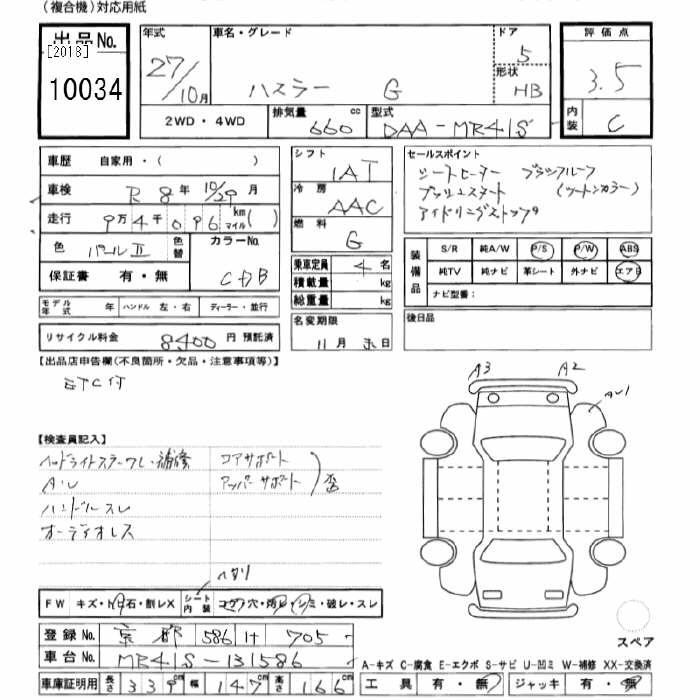 (複合機)対応用紙
出品No.
[2018]
10034
年式
27/10月
車名・グレード
ハスラー G
ドア
5
形状
HB
評価点
3.5
内装
C
2WD・4WD
排気量 660 cc
型式 DAA-MR41S
車歴 自家用・( )
車検 R 8年 10/29 月
走行 9万4千096 km マイル( )
色 パールII 色替
カラーNo.
保証書 有・無
モデル年式 年 ハンドル 左・右 ディーラー・並行
リサイクル料金 8400 円 預託済
シフト
IAT
冷房
AAC
燃料
G
乗車定員 4名
積載量 kg
総重量 kg
名変期限
11月 末日
セールスポイント
シートヒーター ブラックルーフ
プッシュスタート (ツートンカラー)
アイドリングストップ
装備品
S/R 純A/W P/S P/W ABS
純TV 純ナビ 革シート 外ナビ エアB
ナビ型番:
後日品
【出品店申告欄(不良箇所・欠品・注意事項等)】
ETC付
【検査員記入】
コアサポート
アッパーサポート
ハンドルスレ
オーディオレス
A3 A2
FW キズ・トビ石・割レX シート内装 コゲ・穴・汚レ・シミ・破レ・スレ
登録No. 京都 586 705
車台No. MR41S-131586
車庫証明用 長さ 339cm 幅 147cm 高さ 166cm
スペア
A-キズ C-腐食 E-エクボ S-サビ U-凹ミ W-補修 XX-交換済
工具 有・無 ジャッキ 有・無